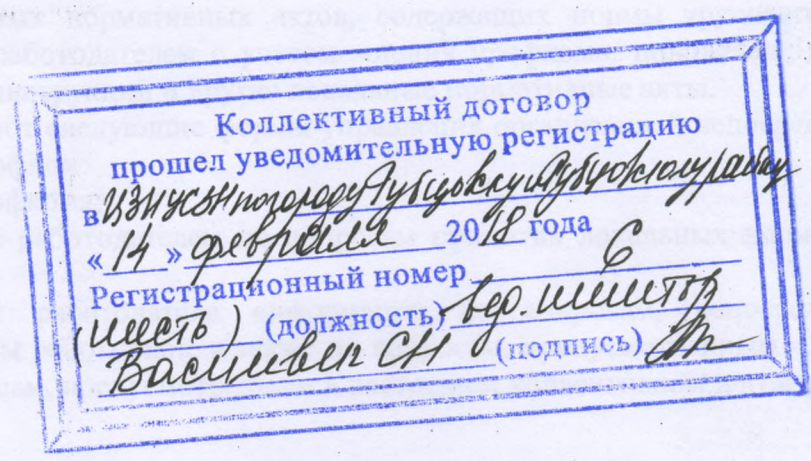 Коллективный договор
прошел уведомительную регистрацию
в ЦЗН УСЗН по городу Рубцовску и Рубцовскому району
«14» февраля 2018 года
Регистрационный номер 6
(шесть) (должность) вед. инспектор
Васильева СН (подпись)